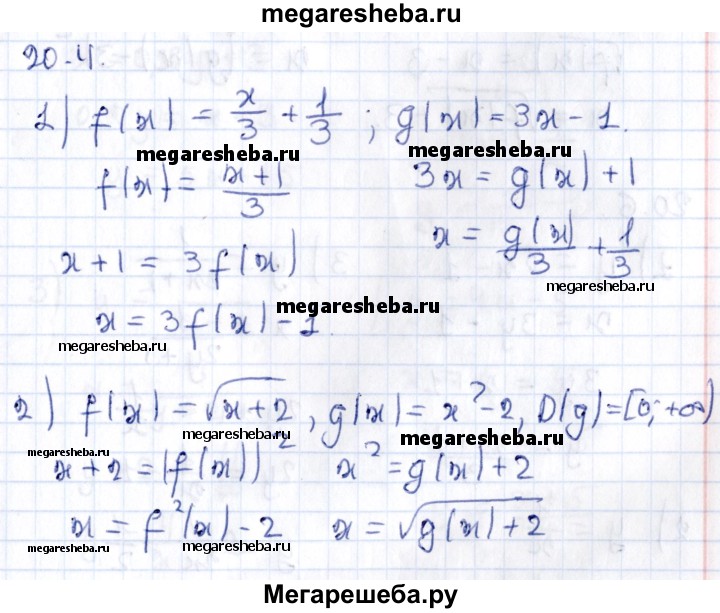 megaresheba.ru
20.4.
1) f(x) = x/3 + 1/3 ; g(x) = 3x - 1.
megaresheba.ru megaresheba.ru
f(x) = (x+1)/3 3x = g(x) + 1
x + 1 = 3f(x) x = g(x)/3 + 1/3
megaresheba.ru
megaresheba.ru
x = 3f(x) - 1.
megaresheba.ru
2) f(x) = √(x+2), g(x) = x² - 2, D(g) = [0; +∞)
megaresheba.ru megaresheba.ru
megaresheba.ru
x + 2 = (f(x))² x² = g(x) + 2
megaresheba.ru
x = f²(x) - 2 x = √(g(x) + 2)
megaresheba.ru megaresheba.ru
Мегарешеба.ру